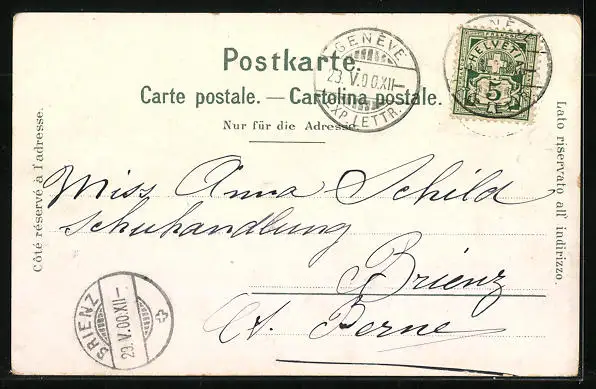 Postkarte.
Carte postale. — Cartolina postale.
Nur für die Adresse.
Côté réservé à l'adresse.
Lato riservato all' indirizzo.
GENÈVE
23.V.00.XII—
EXP. LETTR.
HELVETIA
5
Miss Anna Schild
Schuhandlung
Brienz
Ct. Berne
BRIENZ
23.V.00.XII—